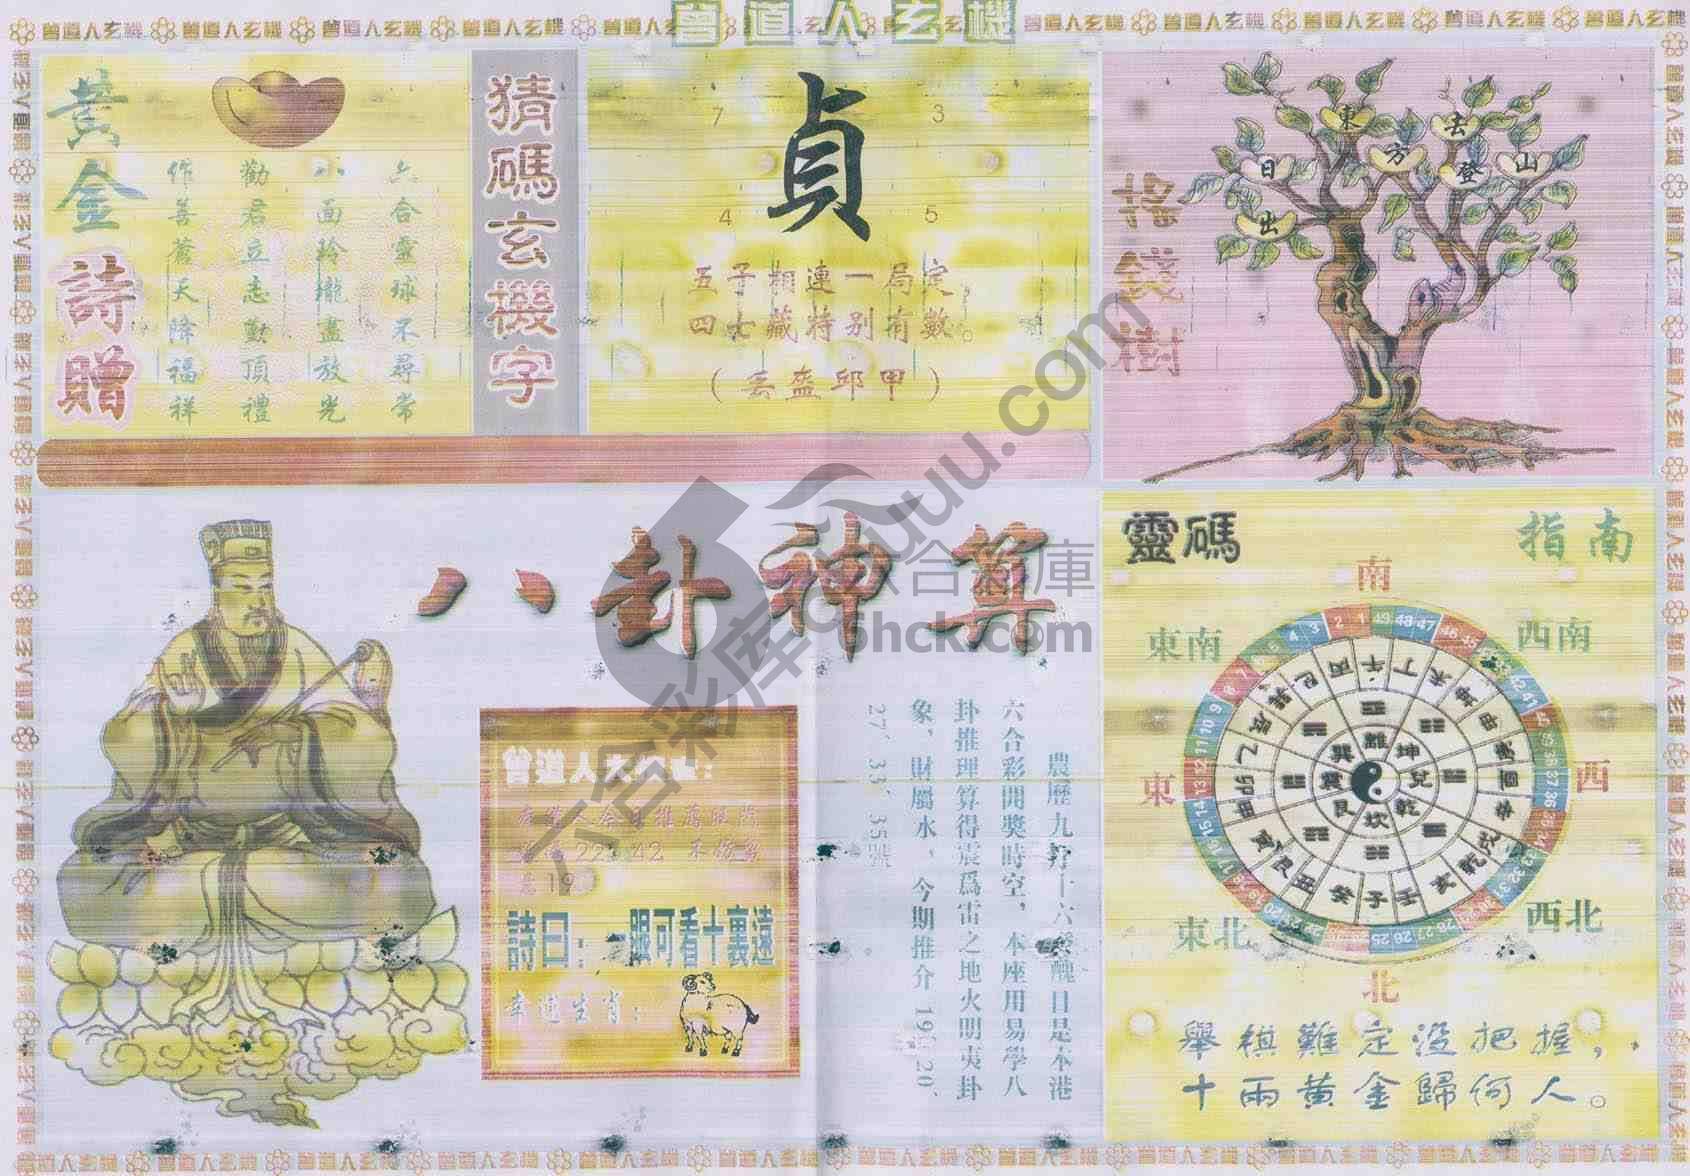 曾道人玄機
黃金詩贈
六合靈球不尋常
八面玲瓏盡放光
勸君立志勤頂禮
作善蒼天降福祥
猜碼玄機字
7
3
貞
4
5
五子相連一局定
四七藏特别有數。
(丢盔卸甲)
搖錢樹
日出東方去登山
八卦神算
六合新庫
6hck.com
曾道人
22
42
19
詩曰：一眼可看十裏遠
幸運生肖：
日是本港
六合彩開獎時空，本座用易學八
卦推理算得震爲雷之地火明夷卦
象，財屬水，今期推介 19、20、
27、33、35號
靈碼
指南
南
東南
西南
東
西
東北
西北
北
離
坤
兌
乾
坎
艮
震
巽
舉棋難定没把握，
十兩黃金歸何人。